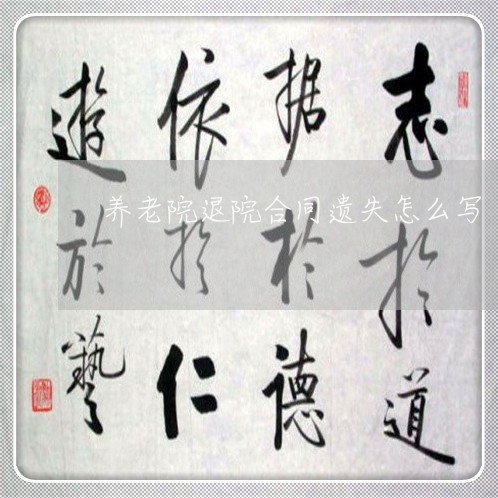 志於道
据於德
依於仁
遊於藝
养老院退院合同遗失怎么写